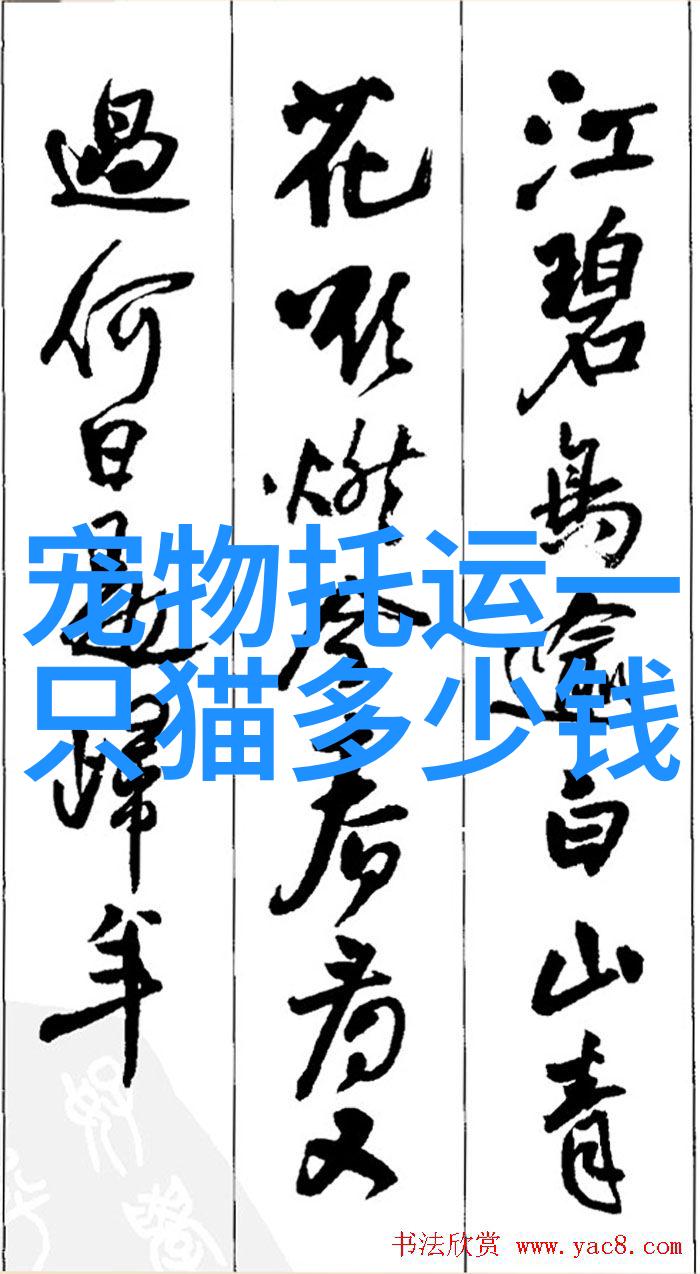 江碧鳥逾白山青
花欲燃今春看又
過何日是歸年
宠物托运一
只猫多少钱
书法欣赏 www.yac8.com